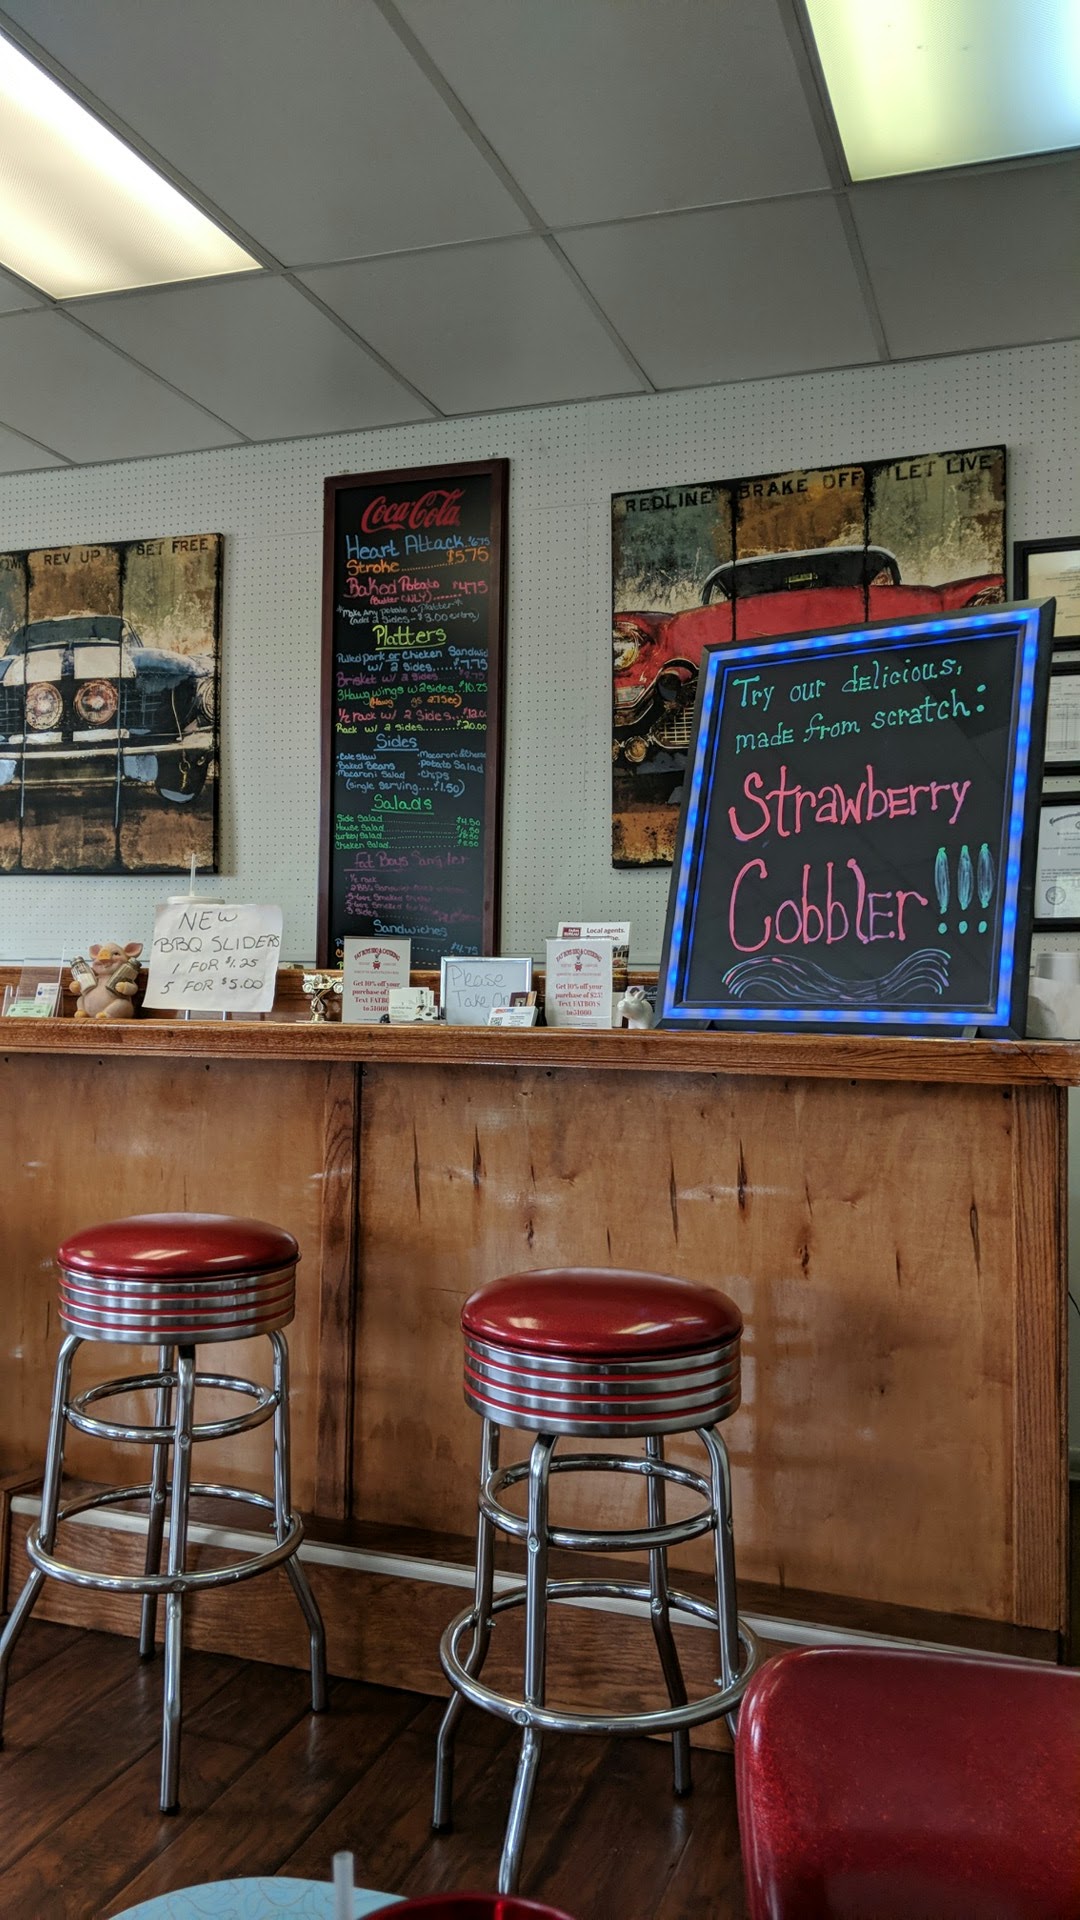 REV UP
SET FREE
REDLINE
BRAKE OFF
LET LIVE
Coca-Cola
Heart Attack. $6.75
Stroke............$5.75
Baked Potato $4.75
(Butter ONLY)
*Make Any potato a platter*
(add 2 sides-$3.00 extra)
Platters
Pulled Pork or Chicken Sandwich
w/ 2 Sides.....$7.75
Brisket w/ 2 Sides
3 Hawg wings w/ 2 sides..$10.25
1/2 rack w/ 2 Sides...$12.00
Rack w/ 2 sides........$20.00
Sides
Cole Slaw
Baked Beans
Macaroni Salad
Macaroni & Cheese
Potato Salad
Chips
(Single Serving....$1.50)
Salads
Side Salad
House Salad
turkey Salad
Chicken Salad
Fat Boys Sampler
1/2 rack
Sandwiches
Try our delicious,
made from scratch:
Strawberry
Cobbler!!!
NEW
BBQ SLIDERS
1 FOR $1.25
5 FOR $5.00
FAT BOYS BBQ & CATERING
Get 10% off your
purchase of $25!
Text FATBOYS
to 51660
Please
Take
Local agents.